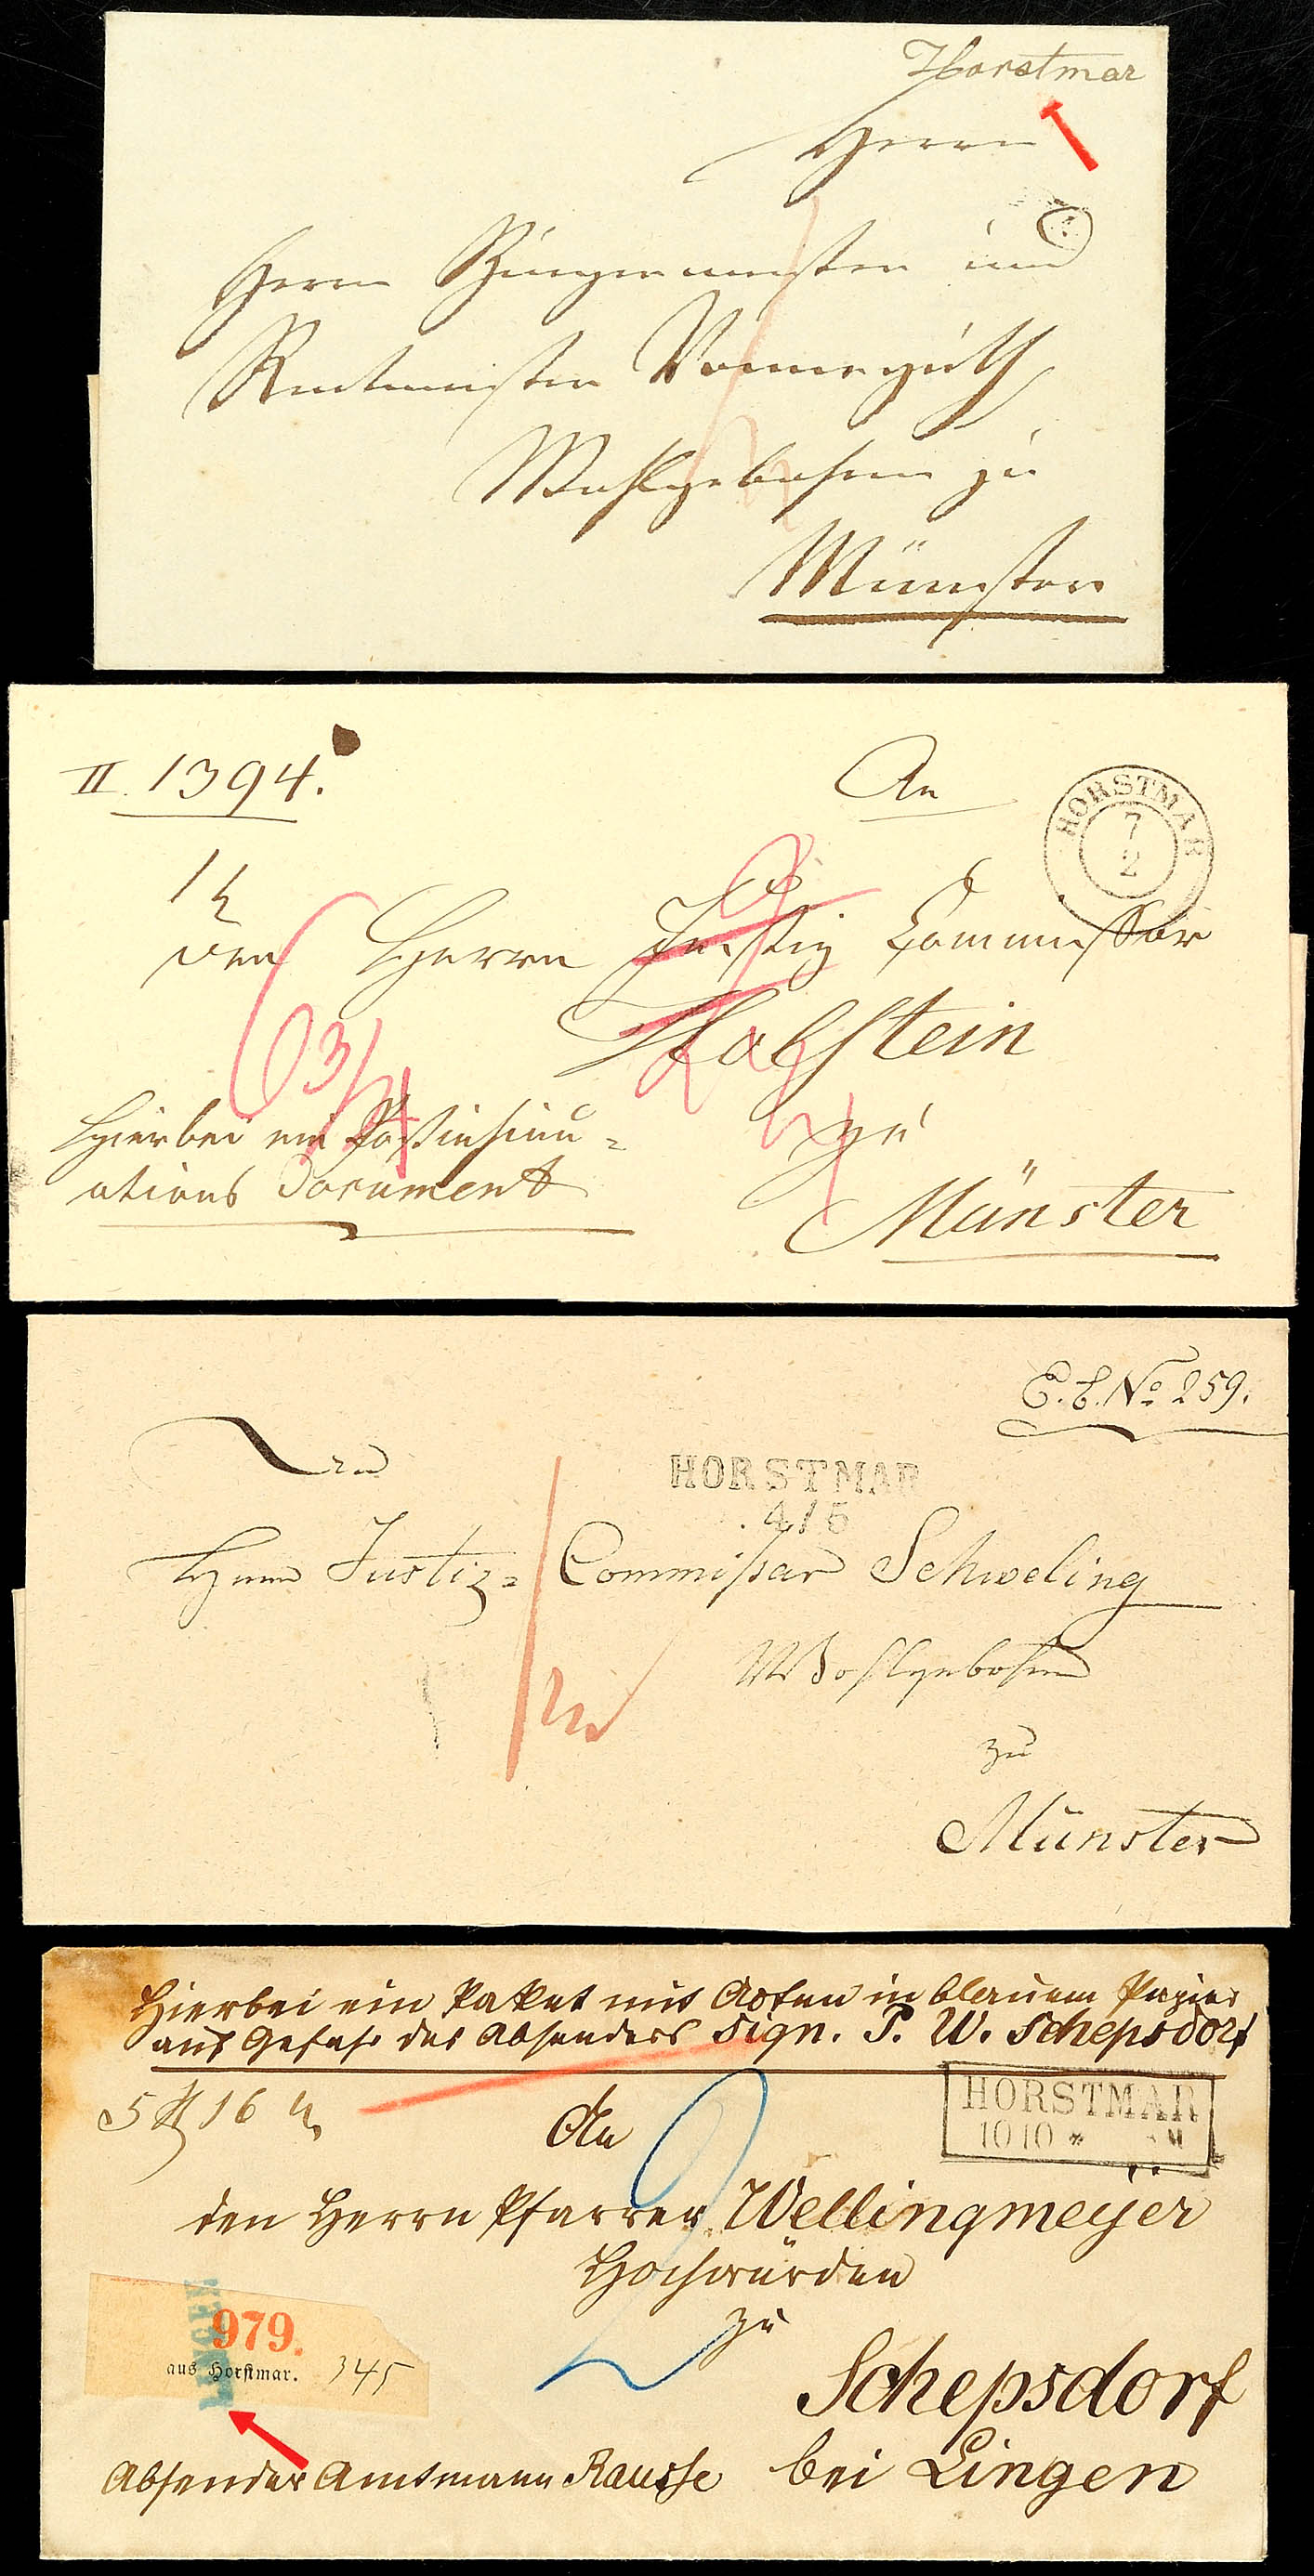 Horstmar
Herrn
Herrn Bürgermeister und
Rentmeister
Wohlgeboren zu
Münster
II. 1394.
An
HORSTMAR
7
2
den Herrn Justiz Commissar
zu
Münster
Hierbei ein Postinsinu-
ations Document
E. B. No 259.
HORSTMAR
4/5
Herrn Justiz-Commissar Schweling
Wohlgeboren
zu
Münster
Hierbei ein Paket mit Acten in blauem Papier
auf Gefahr des Absenders Sign. P. W. Schepsdorf
HORSTMAR
10 10 *
An
den Herrn Pfarrer Wellingmeÿer
Hochwürden
zu
Schepsdorf
bei Lingen
979.
aus Horstmar. 345
Absender Amtmann Rausse